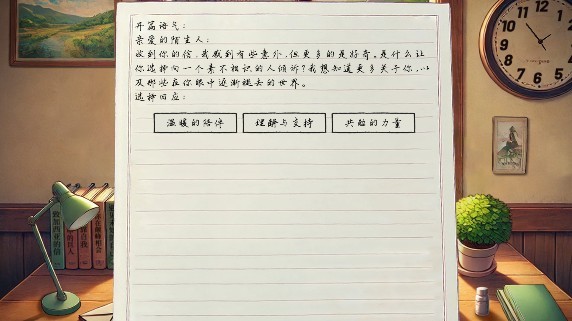 开篇语气：
亲爱的陌生人：
收到你的信，我感到有些意外，但更多的是好奇。是什么让
你选择向一个素不相识的人倾诉？我想知道更多关于你，以
及那些在你眼中逐渐褪去的世界。
选择回应：
温暖的陪伴
理解与支持
共脸的力量
12
1
2
3
4
5
6
7
8
9
10
11